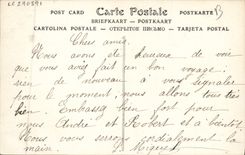 LE 290391
Carte Postale
POSTKARTE
POST CARD
BRIEFKAART - POSTKAART
CARTOLINA POSTALE - ОТКРЫТОЕ ПИСЬМО - TARJETA POSTAL
Chers amis
Nous avons de de voir
que vous aviez fait un bon voyage
rien de nouveau à vous signaler
pour le moment, nous allons tous très
bien. Embassez bien fort pour
nous André et Robert et à bientôt
Nous vous serrons cordialement la
main.